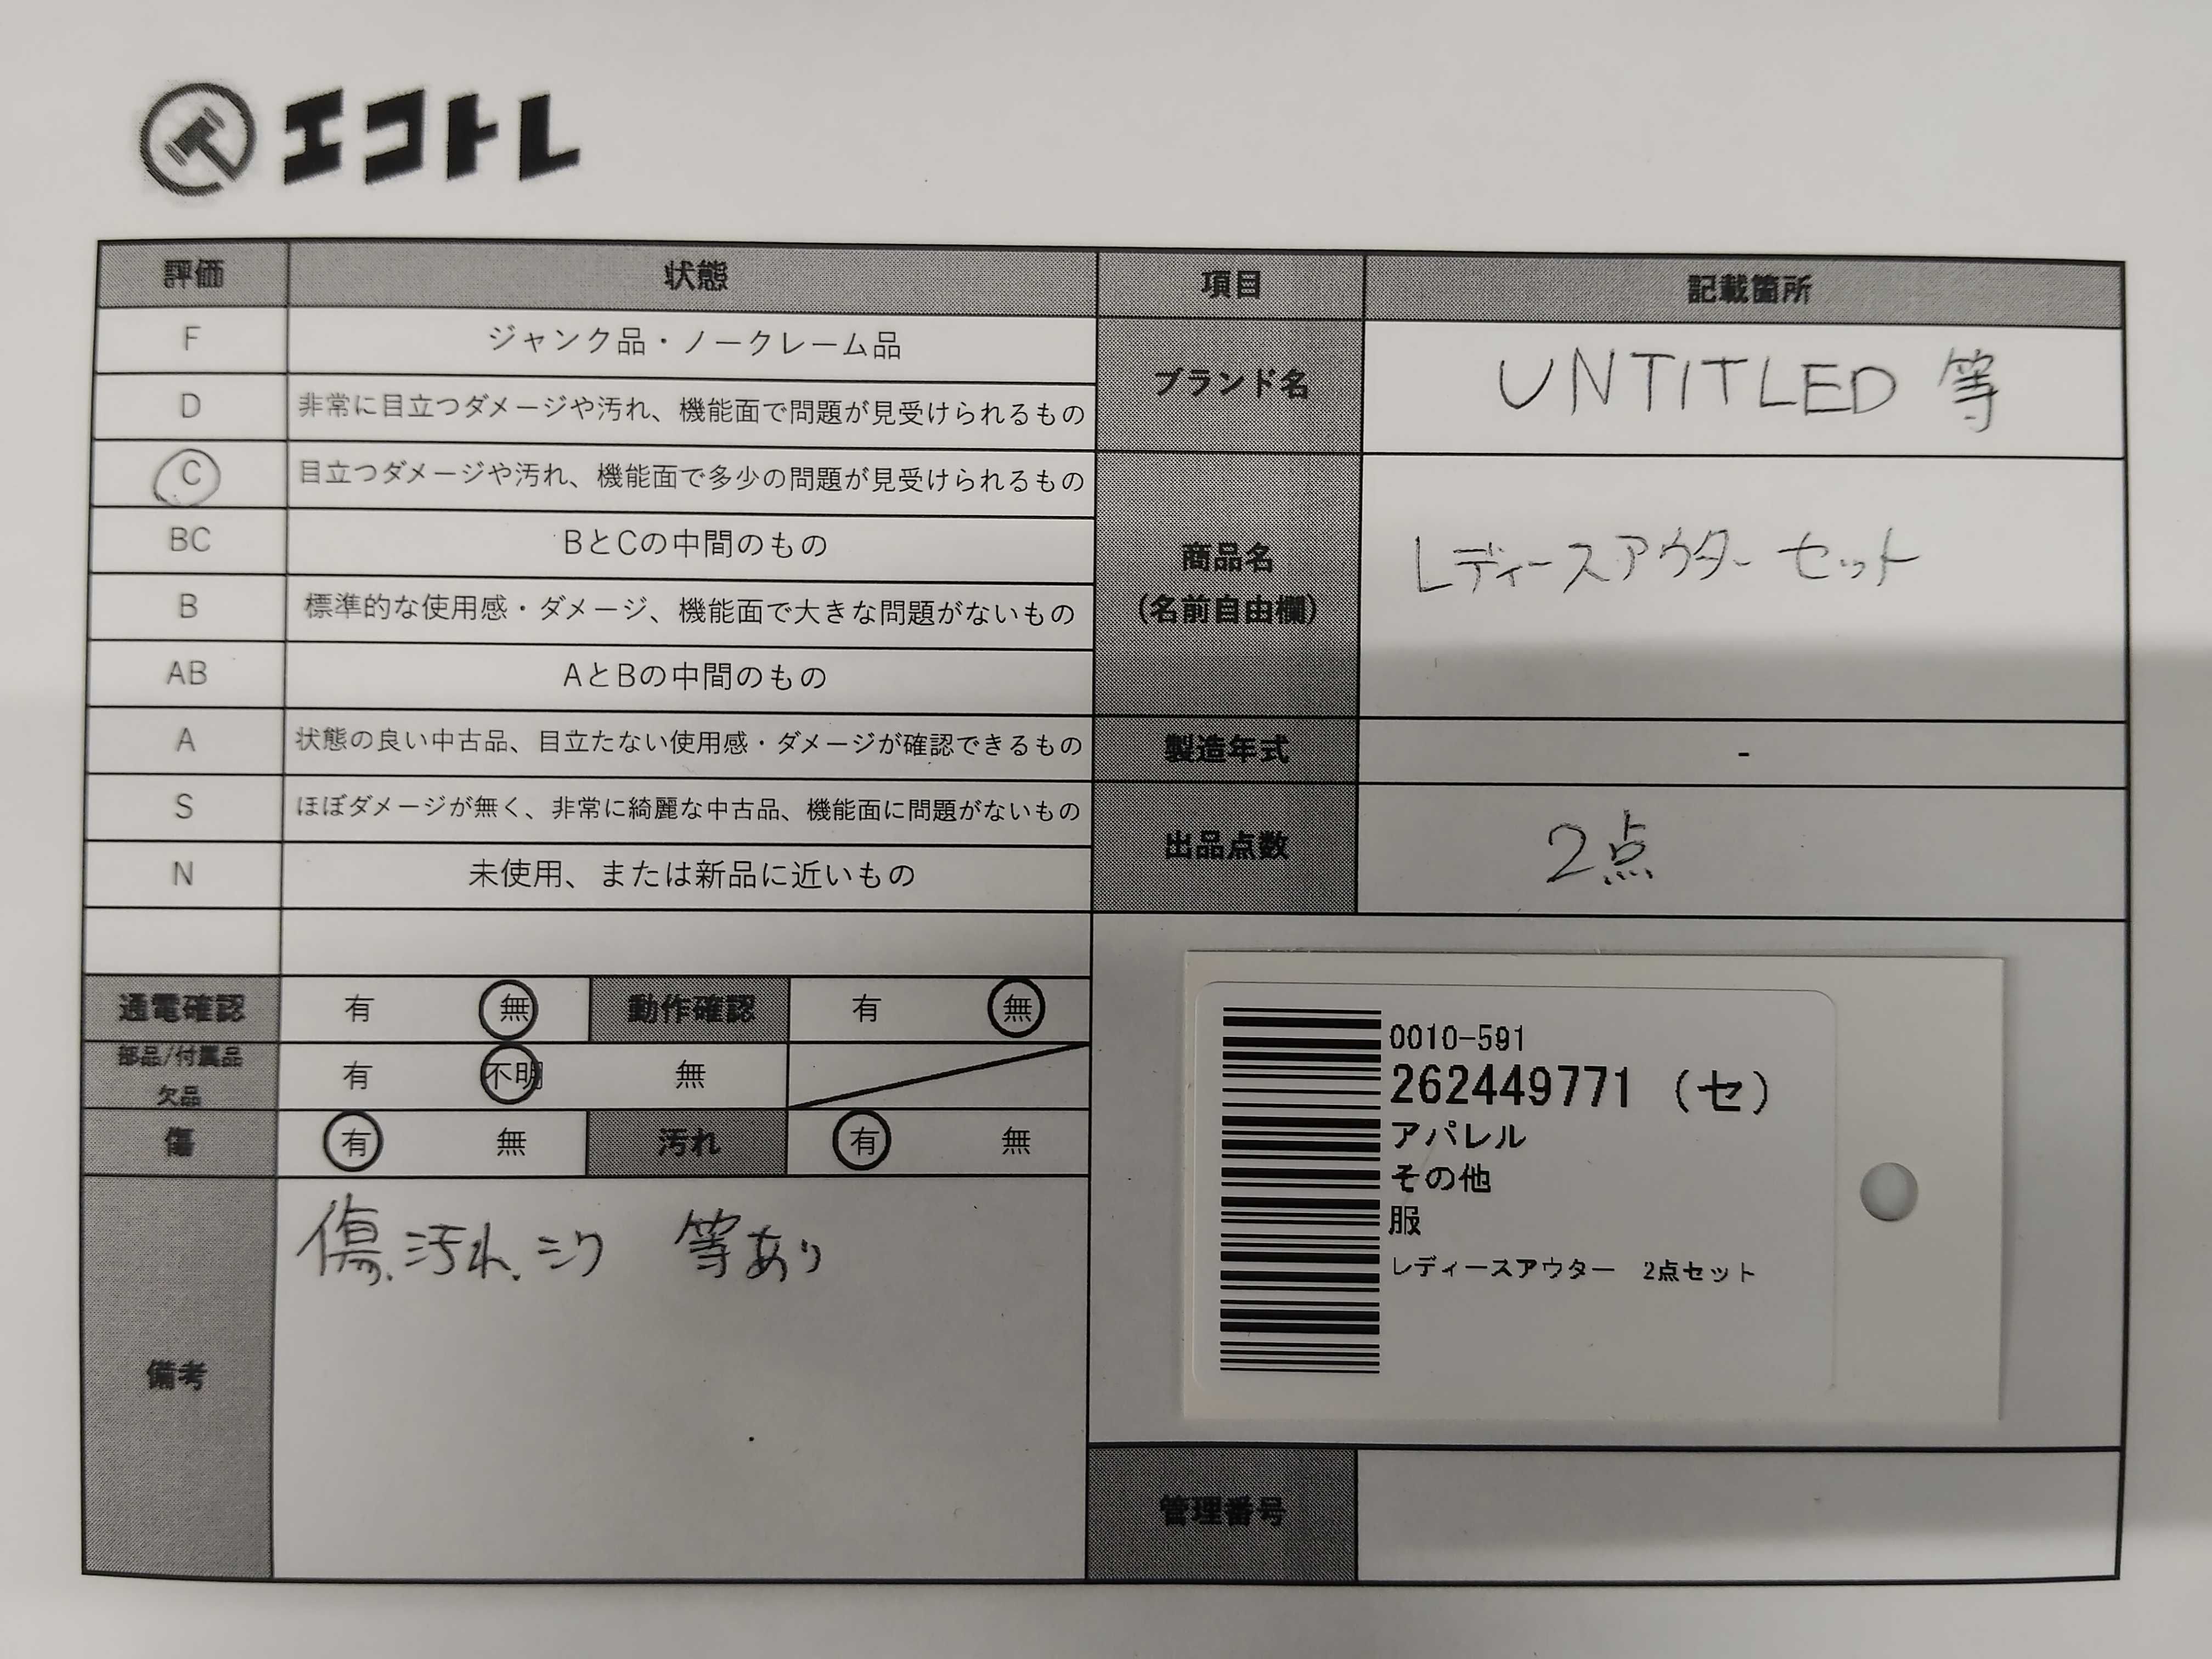 エコトレ
評価 状態
F ジャンク品・ノークレーム品
D 非常に目立つダメージや汚れ、機能面で問題が見受けられるもの
C 目立つダメージや汚れ、機能面で多少の問題が見受けられるもの
BC BとCの中間のもの
B 標準的な使用感・ダメージ、機能面で大きな問題がないもの
AB AとBの中間のもの
A 状態の良い中古品、目立たない使用感・ダメージが確認できるもの
S ほぼダメージが無く、非常に綺麗な中古品、機能面に問題がないもの
N 未使用、または新品に近いもの
通電確認 有 無 動作確認 有 無
部品/付属品
欠品 有 不明 無
傷 有 無 汚れ 有 無
備考 傷、汚れ、シワ 等あり
項目 記載箇所
ブランド名 UNTITLED 等
商品名
(名前自由欄) レディースアウターセット
製造年式 -
出品点数 2点
0010-591
262449771 (セ)
アパレル
その他
服
レディースアウター 2点セット
管理番号